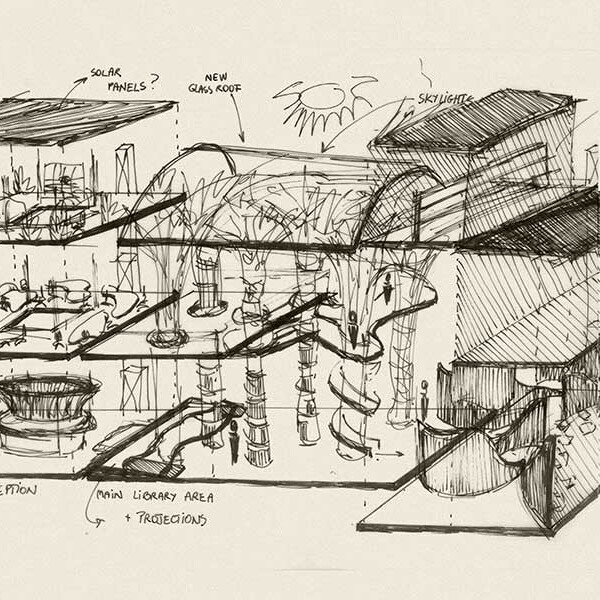 SOLAR
PANELS?
NEW
GLASS ROOF
SKYLIGHTS
EPTION
MAIN LIBRARY AREA
+ PROJECTIONS